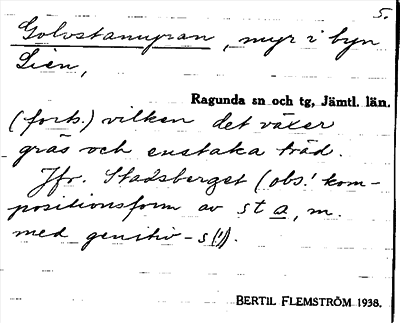 5.
Golvstamyran, myr i byn
Lien,
Ragunda sn och tg, Jämtl. län.
(forts.) vilken det växer
gräs och enstaka träd.
Jfr. Stadsberget (obs.! kom-
positionsform av sta, m.
med genitiv -s(!).
BERTIL FLEMSTRÖM 1938.